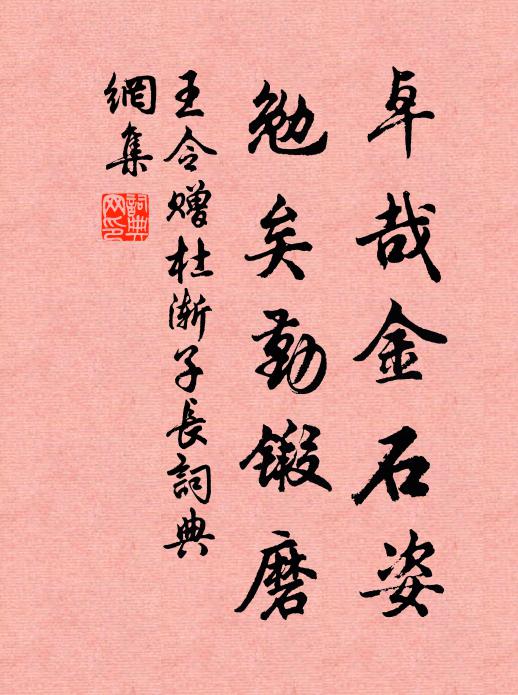 卓哉金石姿
勉矣勤锻磨
王令赠杜渐子长詞典
網集
詞典
网印